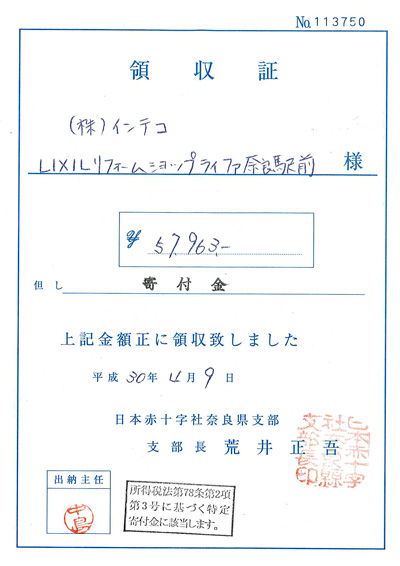 No.113750
領収証
(株)インテコ
LIXILリフォームショップライファ奈良駅前 様
¥ 57,963.-
但し 寄付金
上記金額正に領収致しました
平成 30年 4月 9日
日本赤十字社奈良県支部
支部長 荒井正吾
日本赤十字
社奈良縣
支部長印
出納主任
中島
所得税法第78条第2項
第3号に基づく特定
寄付金に該当します。